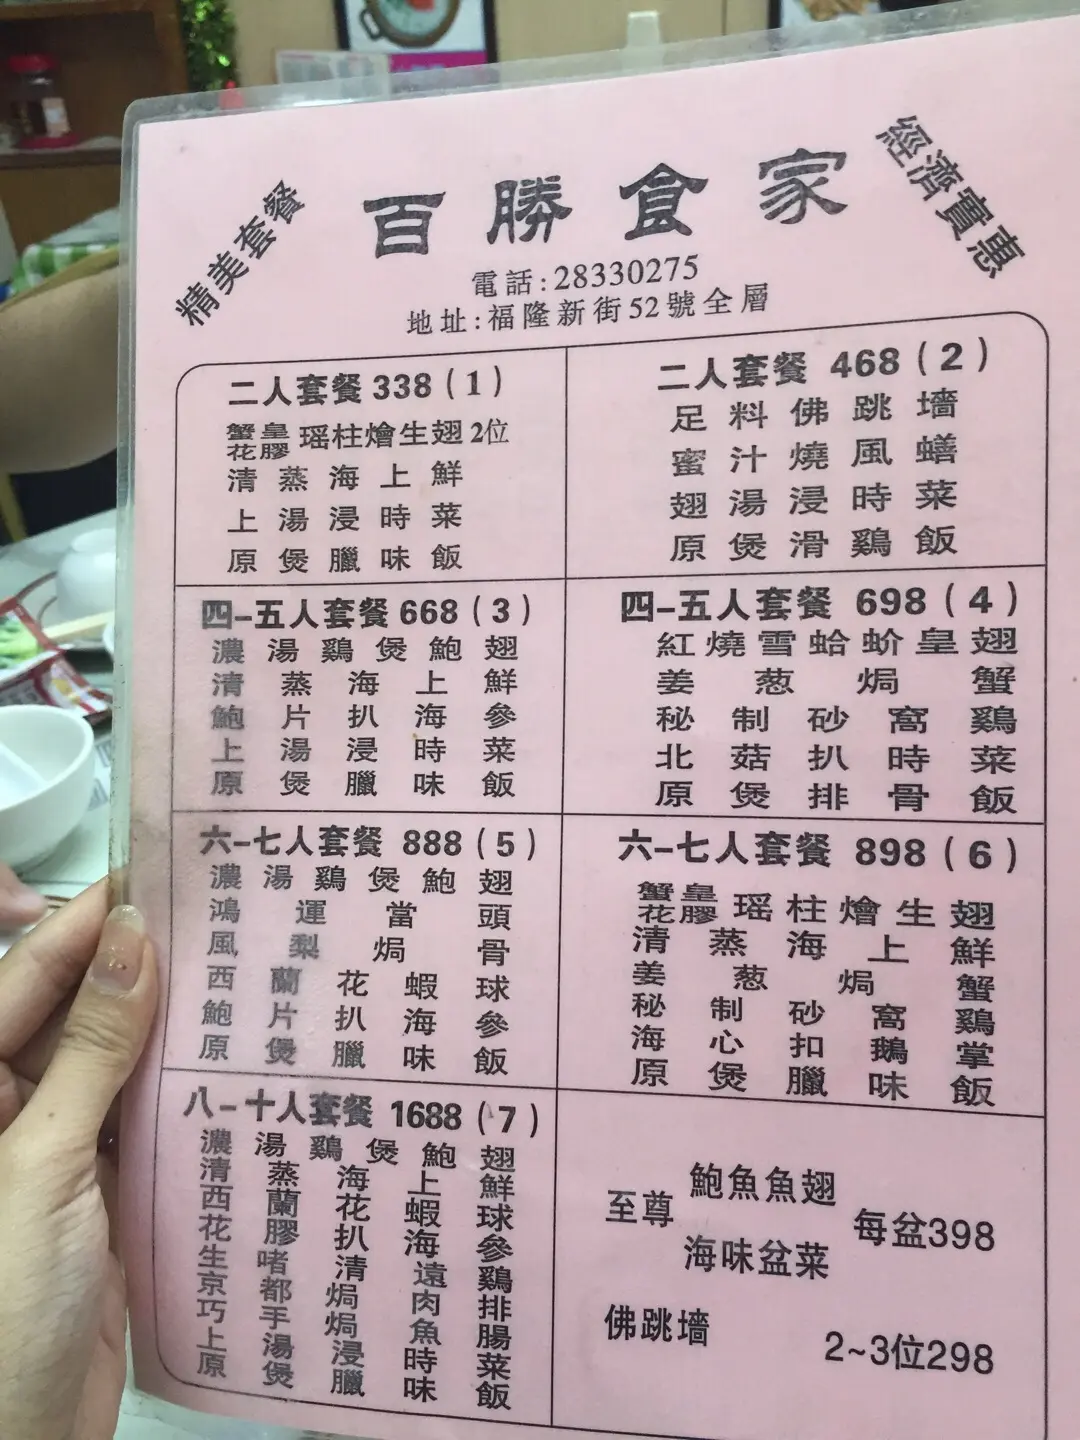 精美套餐
百勝食家
經濟實惠
電話:28330275
地址:福隆新街52號全層
二人套餐 338(1)
蟹皇花膠瑶柱燴生翅2位
清蒸海上鮮
上湯浸時菜
原煲臘味飯
二人套餐 468(2)
足料佛跳墻
蜜汁燒風蟮
翅湯浸時菜
原煲滑鷄飯
四-五人套餐 668(3)
濃湯鷄煲鮑翅
清蒸海上鮮
鮑片扒海參
上湯浸時菜
原煲臘味飯
四-五人套餐 698(4)
紅燒雪蛤蚧皇翅
姜葱焗蟹
秘制砂窩鷄
北菇扒時菜
原煲排骨飯
六-七人套餐 888(5)
濃湯鷄煲鮑翅
鴻運當頭
風梨焗骨
西蘭花蝦球
鮑片扒海參
原煲臘味飯
六-七人套餐 898(6)
蟹皇花膠瑶柱燴生翅
清蒸海上鮮
姜葱焗蟹
秘制砂窩鷄
海心扣鵝掌
原煲臘味飯
八-十人套餐 1688(7)
濃湯鷄煲鮑翅
清蒸海上鮮
西蘭花蝦球
花膠扒海參
生啫清遠鷄
京都焗肉排
巧手焗魚腸
上湯浸時菜
原煲臘味飯
至尊
鮑魚魚翅
海味盆菜
每盆398
佛跳墻
2~3位298